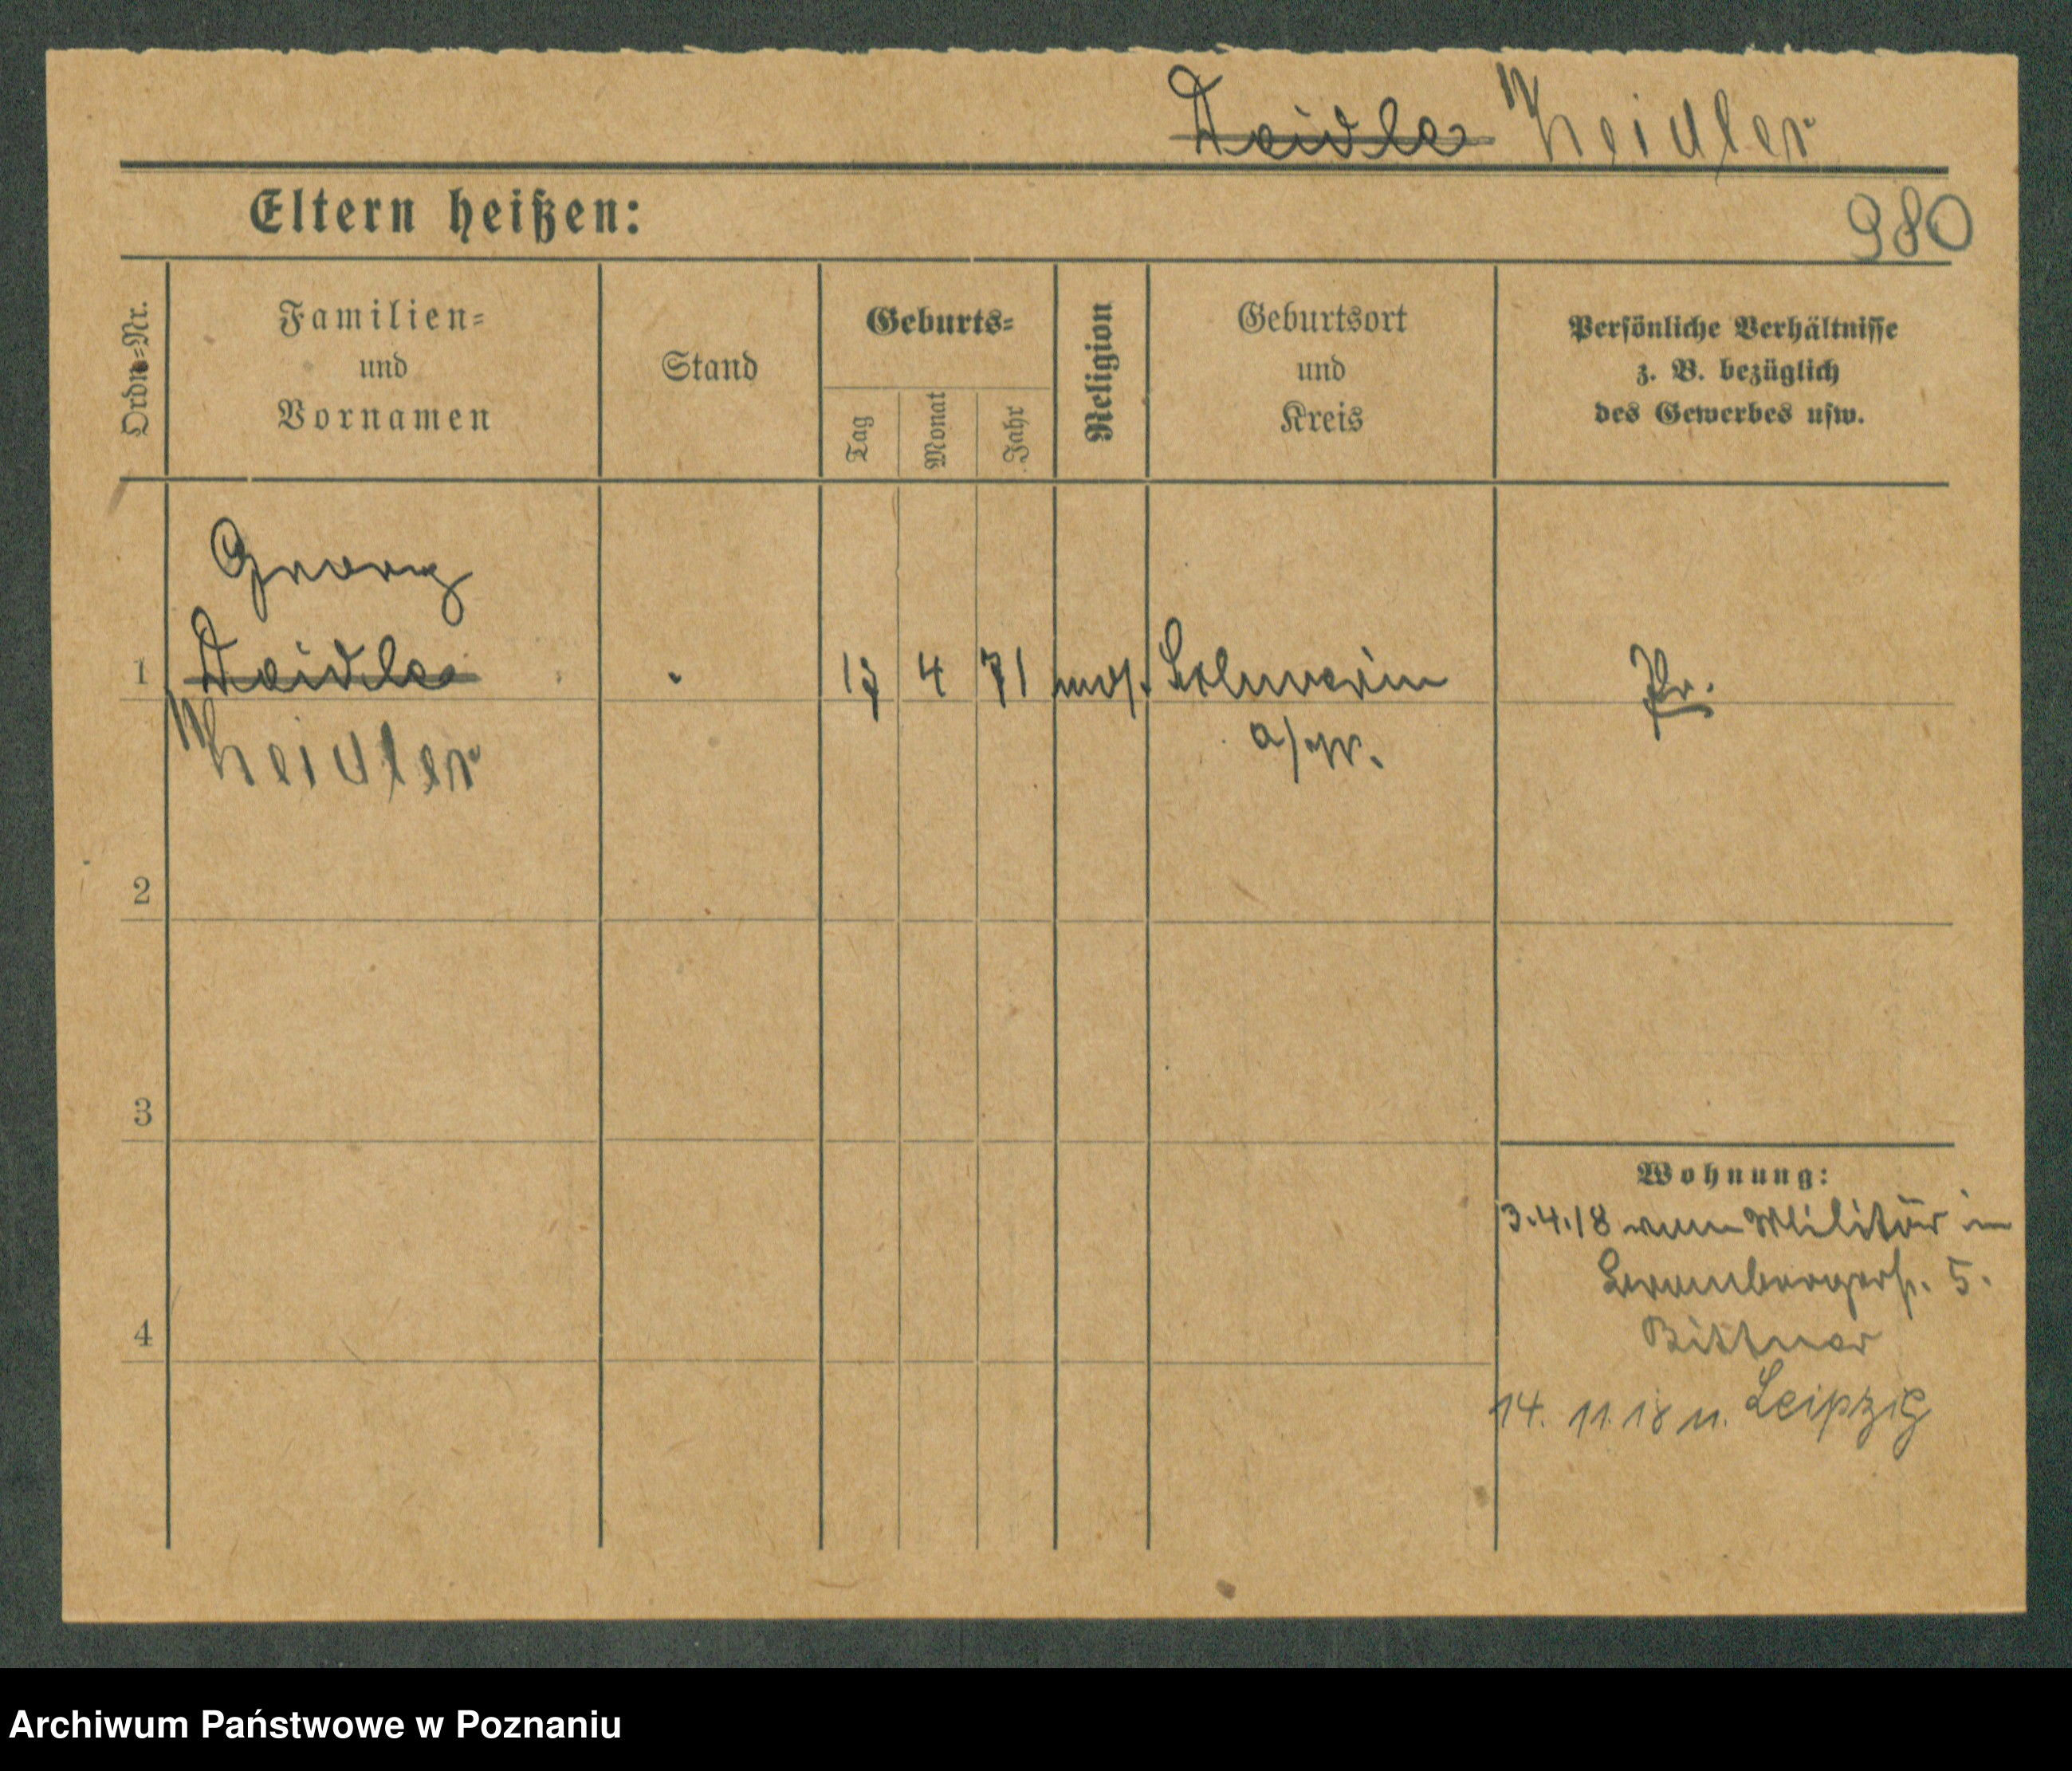 Zeidler
Eltern heißen:
980
Ordn=Nr.
Familien=
und
Vornamen
Stand
Geburts=
Tag
Monat
Jahr
Religion
Geburtsort
und
Kreis
Persönliche Verhältnisse
z. B. bezüglich
des Gewerbes usw.
Georg
1
4 71 mos. Schwerin
Pr.
Zeidler
a/W.
2
3
Wohnung:
3.4.18 vom Militär in
5.
4
Bittner
14. 11. 18 n. Leipzig
Archiwum Państwowe w Poznaniu